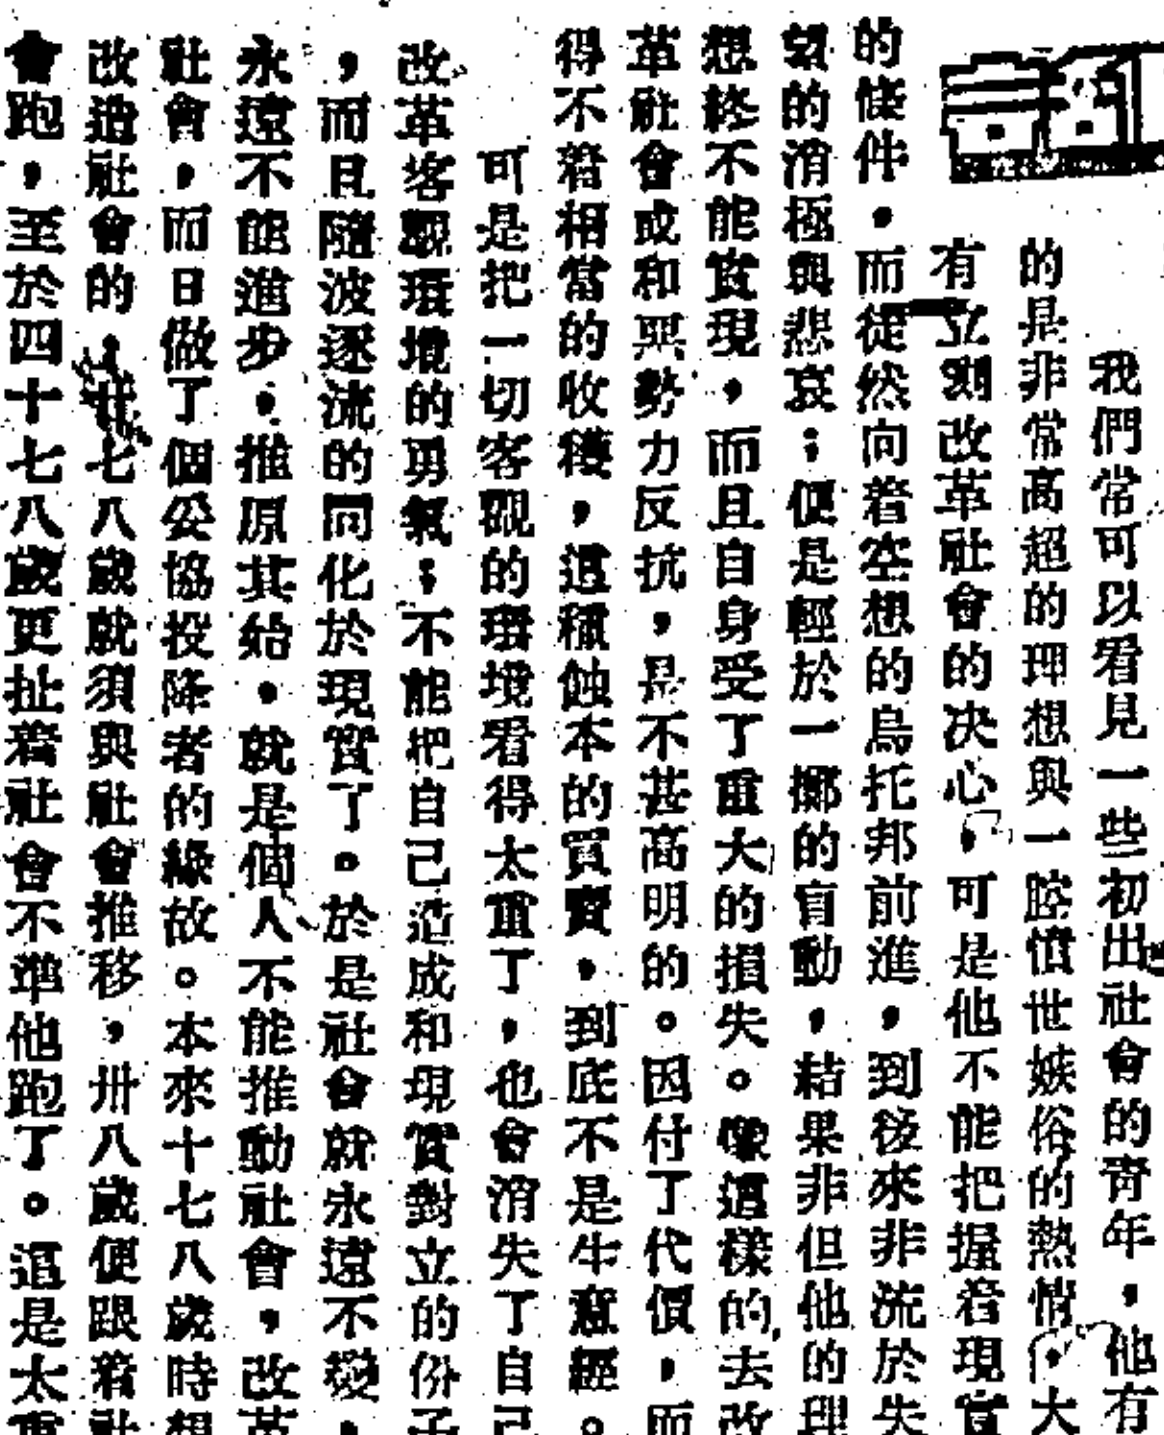 我們常可以看見一些初出社會的青年，他有
的是非常高超的理想與一腔憤世嫉俗的熱情，大
有立刻改革社會的决心，可是他不能把握着現實
的條件，而徒然向着空想的烏托邦前進，到後來非流於失
望的消極與悲哀；便是輕於一擲的盲動，結果非但他的理
想終不能實現，而且自身受了重大的損失。像這樣的去改
革社會或和惡勢力反抗，是不甚高明的。因付了代價，而
得不着相當的收穫，這種蝕本的買賣，到底不是生意經。
可是把一切客觀的環境看得太重了，也會消失了自己
改革客觀環境的勇氣；不能把自己造成和現實對立的份子
，而且隨波逐流的同化於現實了。於是社會就永遠不變，
永遠不能進步，推原其始，就是個人不能推動社會，改革
社會，而日做了個妥協投降者的緣故。本來十七八歲時想
改造社會的，廿七八歲就須與社會推移，卅八歲便跟着社
會跑，至於四十七八歲更扯着社會不準他跑了。這是太重